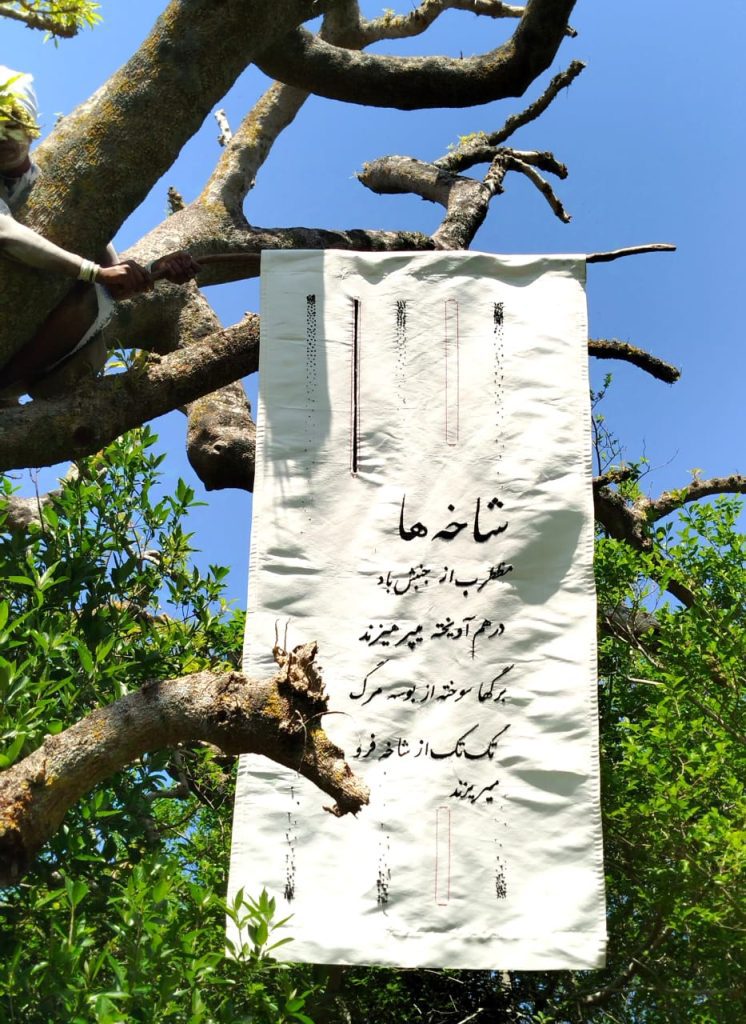 شاخه ها
مضطرب از جنبش باد
در هم آویخته میپرهیزند
برگها سوخته از بوسه مرگ
تک تک از شاخه فرو
میریزند